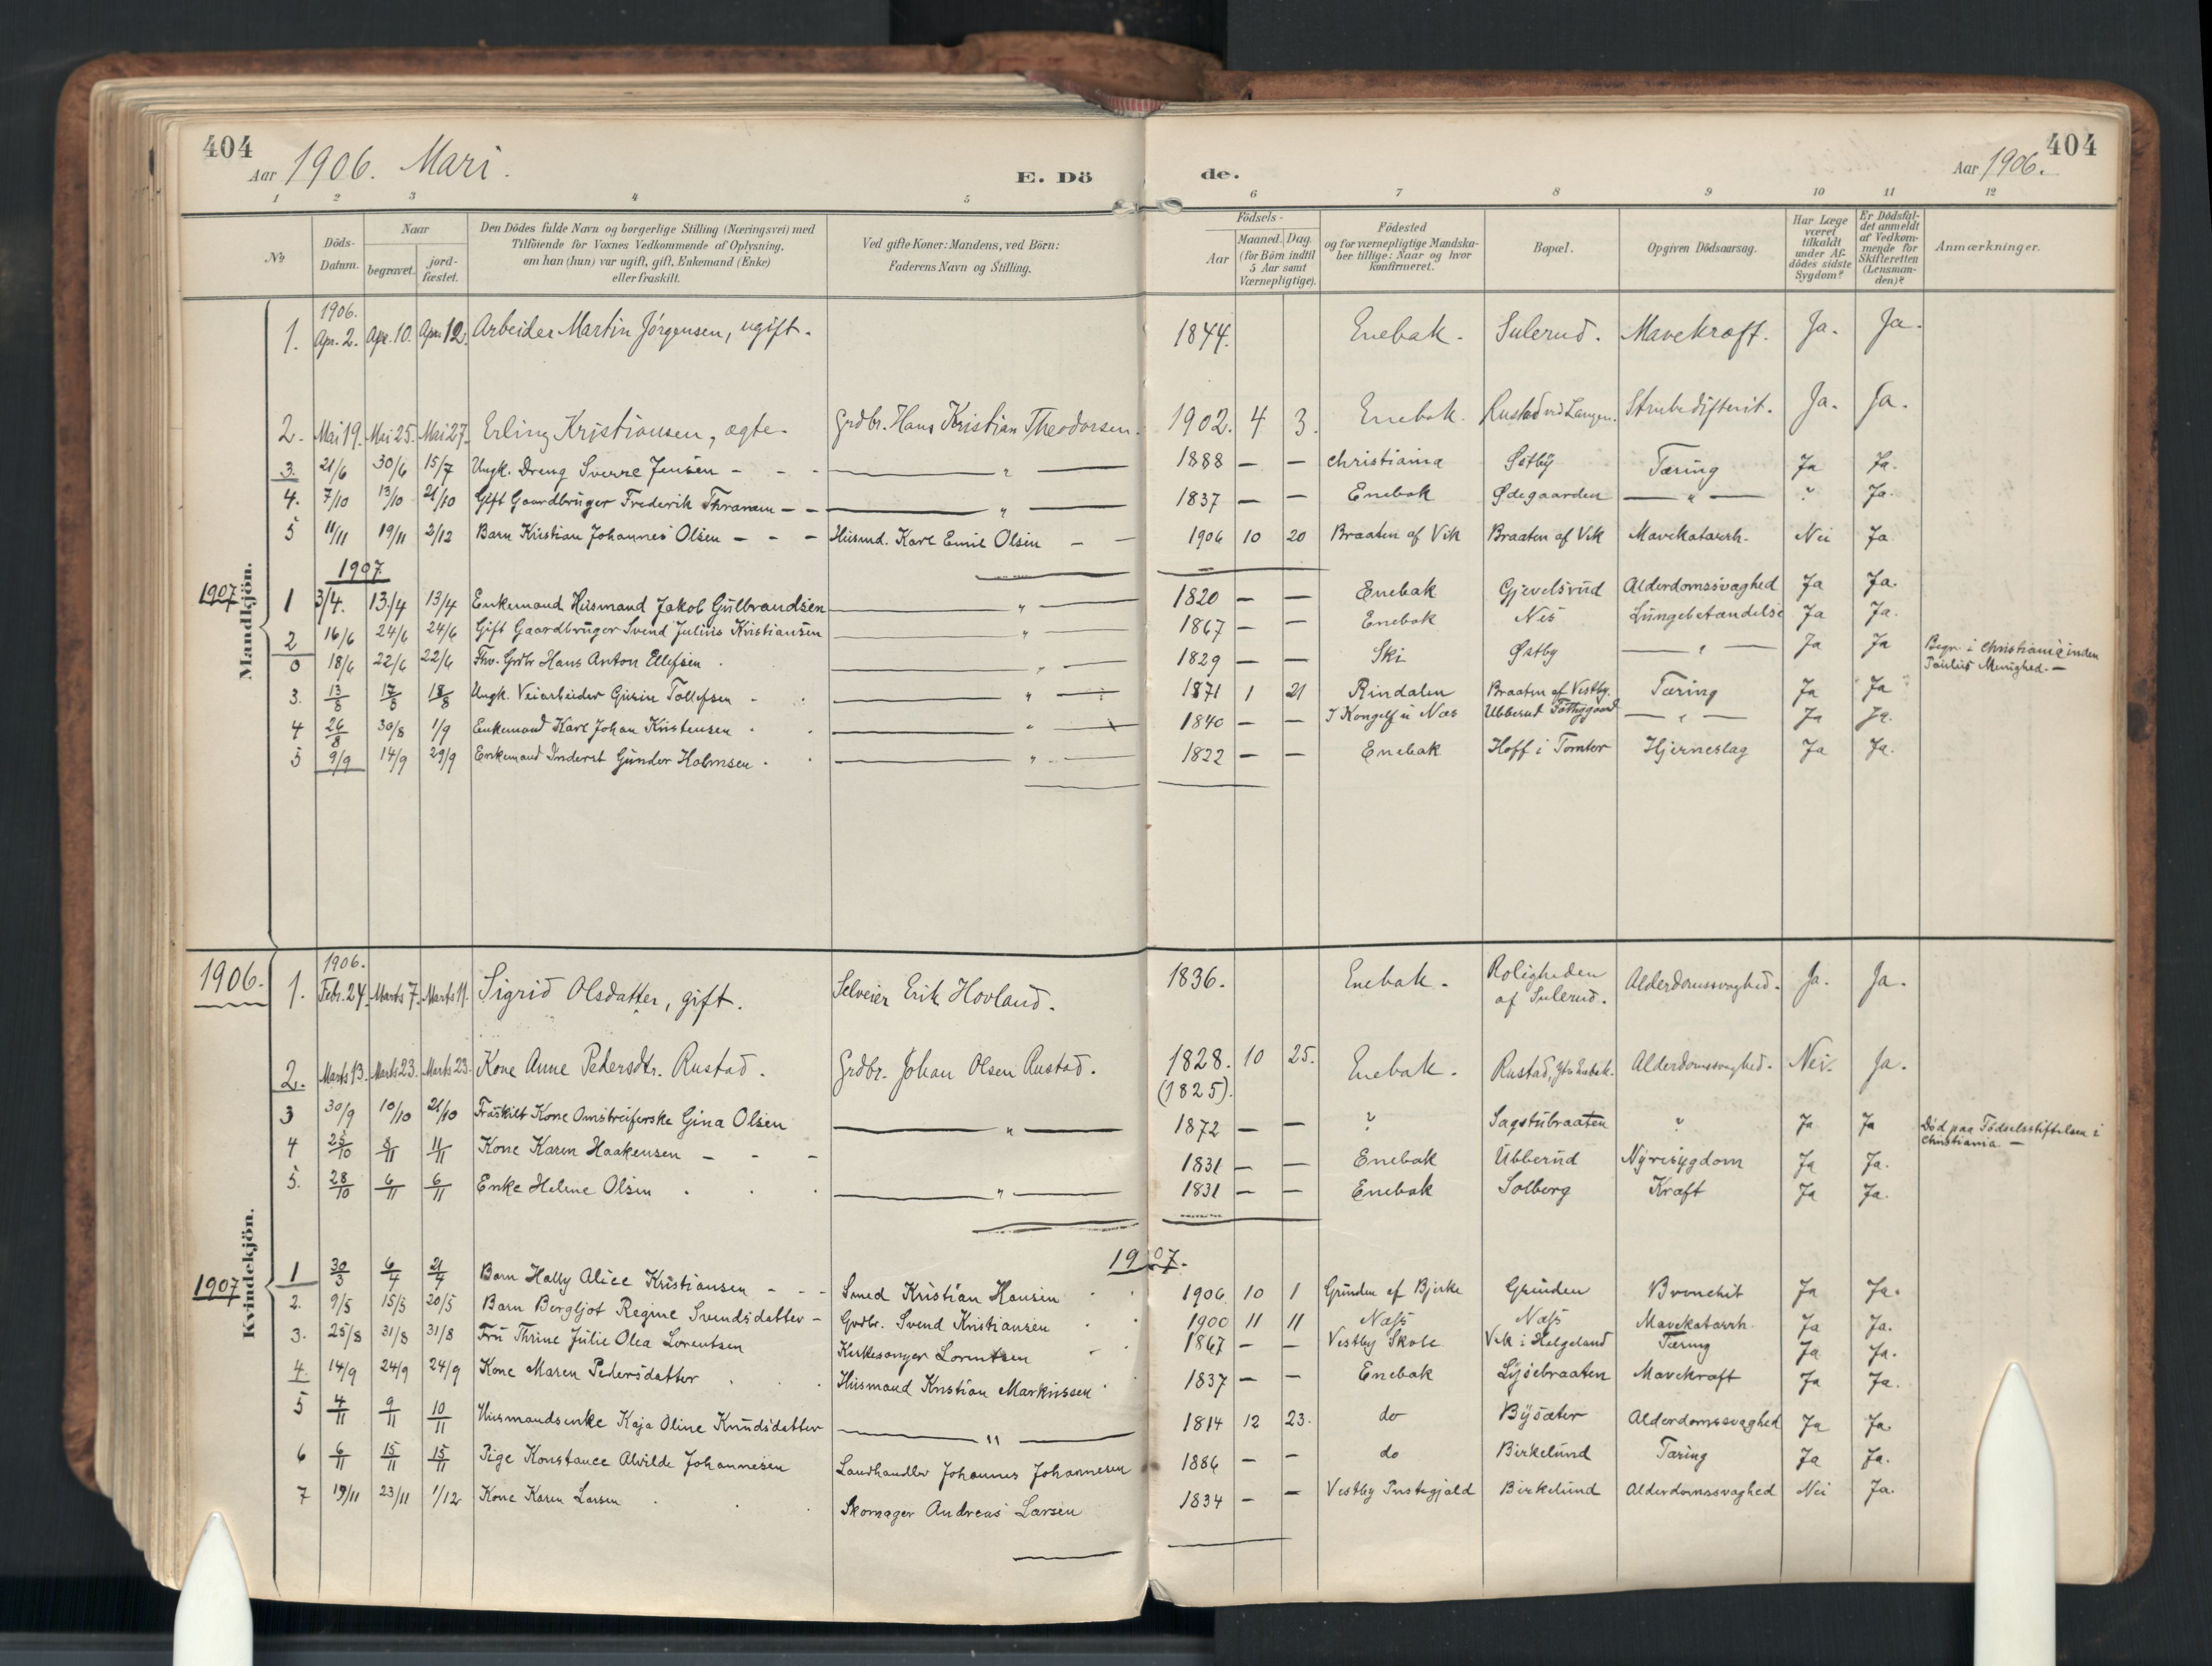 404
Aar 1906. Mari.
E. Dö de.
Aar 1906.
404
1 2 3 4 5 6 7 8 9 10 11 12
No
Döds-Datum.
Naar
begravet.
jord-fæstet.
Den Dödes fulde Navn og borgerlige Stilling (Næringsvei) med
Tilföiende for Voxnes Vedkommende af Oplysning,
om han (hun) var ugift, gift, Enkemand (Enke)
eller fraskilt.
Ved gifte Koner: Mandens, ved Börn:
Faderens Navn og Stilling.
Födsels-
Aar
Maaned. Dag.
(for Börn indtil
5 Aar samt
Værnepligtige).
Födested
og for værnepligtige Mandska-
ber tillige: Naar og hvor
konfirmeret.
Bopæl.
Opgiven Dödsaarsag.
Har Læge
været
tilkaldt
under Af-
dödes sidste
Sygdom?
Er Dödsfal-
det anmeldt
af Vedkom-
mende for
Skifteretten
(Lensman-
den)?
Anmærkninger.
Mandkjön.
1906.
1. Apr. 2. Apr. 10. Apr. 12. Arbeider Martin Jörgensen, ugift. 1844. Enebak. Sulerud. Mavekræft. Ja. Ja.
2. Mai 19. Mai 25. Mai 27. Erling Kristiansen, ægte. Grdbr. Hans Kristian Theodorsen. 1902. 4 3. Enebak. Rustad ved Langen. Strubedifterit. Ja. Ja.
3. 21/6 30/6 15/7 Ungk. Dreng Sverre Jensen - - - — " — 1888 — — Christiania Østby Tæring Ja Ja.
4. 7/10 13/10 21/10 Gift Gaardbruger Frederik Thranem - - — " — 1837 — — Enebak Ødegaarden — " — ? Ja.
5 11/11 19/11 2/12 Barn Kristian Johannes Olsen - - - Husmd. Karl Emil Olsen - - 1906 10 20 Braaten af Vik Braaten af Vik Mavekatarrh. Nei Ja
1907.
1907
1 3/4. 13./4 13/4 Enkemand Husmand Jakob Gulbrandsen — " — 1820 — — Enebak Gjevelsrud Alderdomssvaghed Ja Ja.
2 16/6 24/6 24/6 Gift Gaardbruger Svend Julius Kristiansen — " — 1867 — — Enebak Nes Lungebetændelse Ja Ja.
0 18/6 22/6 22/6 Fhv. Grdbr Hans Anton Ellefsen . — " — 1829 — — Ski Østby — " — Ja Ja Begr. i Christiania inden
Paulus Menighed. —
3. 13/8 17/8 18/8 Ungk. Veiarbeider Tollefsen - — " — 1871 1 21 Rindalen Braaten af Vestby. Tæring Ja Ja
4 26/8 30/8 1/9 Enkemand Karl Johan Kristensen . . — " — 1840 — — I Kongelf Ubberud Fattiggaard — " — Ja Ja.
5 9/9 14/9 29/9 Enkemand Inderst Gunder Holmsen . . — " — 1822 — — Enebak Hoff i Tomter Hjerneslag Ja Ja.
Kvindekjön.
1906.
1906.
1. Febr. 24. Marts 7. Marts 11. Sigrid Olsdatter, gift. Selveier Erik Hovland. 1836. Enebak. Roligheden
af Sulerud. Alderdomssvaghed. Ja. Ja.
2. Marts 13. Marts 23. Marts 23. Kone Anne Pedersdtr. Rustad. Grdbr. Johan Olsen Rustad. 1828. 10 25. Enebak. Rustad, Ytre Enebak. Alderdomssvaghed. Nei. Ja.
(1825).
3 30/9 10/10 21/10 Fraskilt Kone Omstreiferske Gina Olsen — " — 1872 — — ? Sagstubraaten " Ja Ja Död paa Födselsstiftelsen i
Christiania —
4 25/10 8/11 11/11 Kone Karen Haakensen - - - 1831 — — Enebak Ubberud Nyresygdom Ja Ja.
5. 28/10 6/11 6/11 Enke Helene Olsen . . . — " — 1831 — — Enebak Solberg Kræft Ja Ja.
1907.
1907
1 30/3 6/4 21/4 Barn Hally Alice Kristiansen - - - Smed Kristian Hansen . . 1906 10 1 Grinden af Bjerke Grinden Bronchit Ja Ja.
2. 9/5 15/5 20/5 Barn Bergljot Regine Svendsdatter - Grdbr. Svend Kristiansen . . 1900 11 11 Næss Næss Mavekatarrh. Ja Ja.
3. 25/8 31/8 31/8 Fru Thrine Julie Olea Lorentsen Kirkesanger Lorentsen - 1867 — — Vestby Skole Vik i Helgeland Tæring Ja Ja.
4. 14/9 24/9 24/9 Kone Maren Pedersdatter . . . Husmand Kristian Markussen . 1837 — — Enebak Lysebraaten Mavekræft Ja Ja.
5 4/11 9/11 10/11 Husmandsenke Kaja Oline Knudsdatter — " — 1814 12 23. do Bysæter Alderdomssvaghed Ja Ja.
6 6/11 15/11 15/11 Pige Konstance Alvilde Johannesen Landhandler Johannes Johannesen 1886 — — do Birkelund Tæring Ja Ja.
7 19/11 23/11 1/12 Kone Karen Larsen . . . Skomager Andreas Larsen 1834 — — Vestby Prestegjeld Birkelund Alderdomssvaghed Nei Ja.